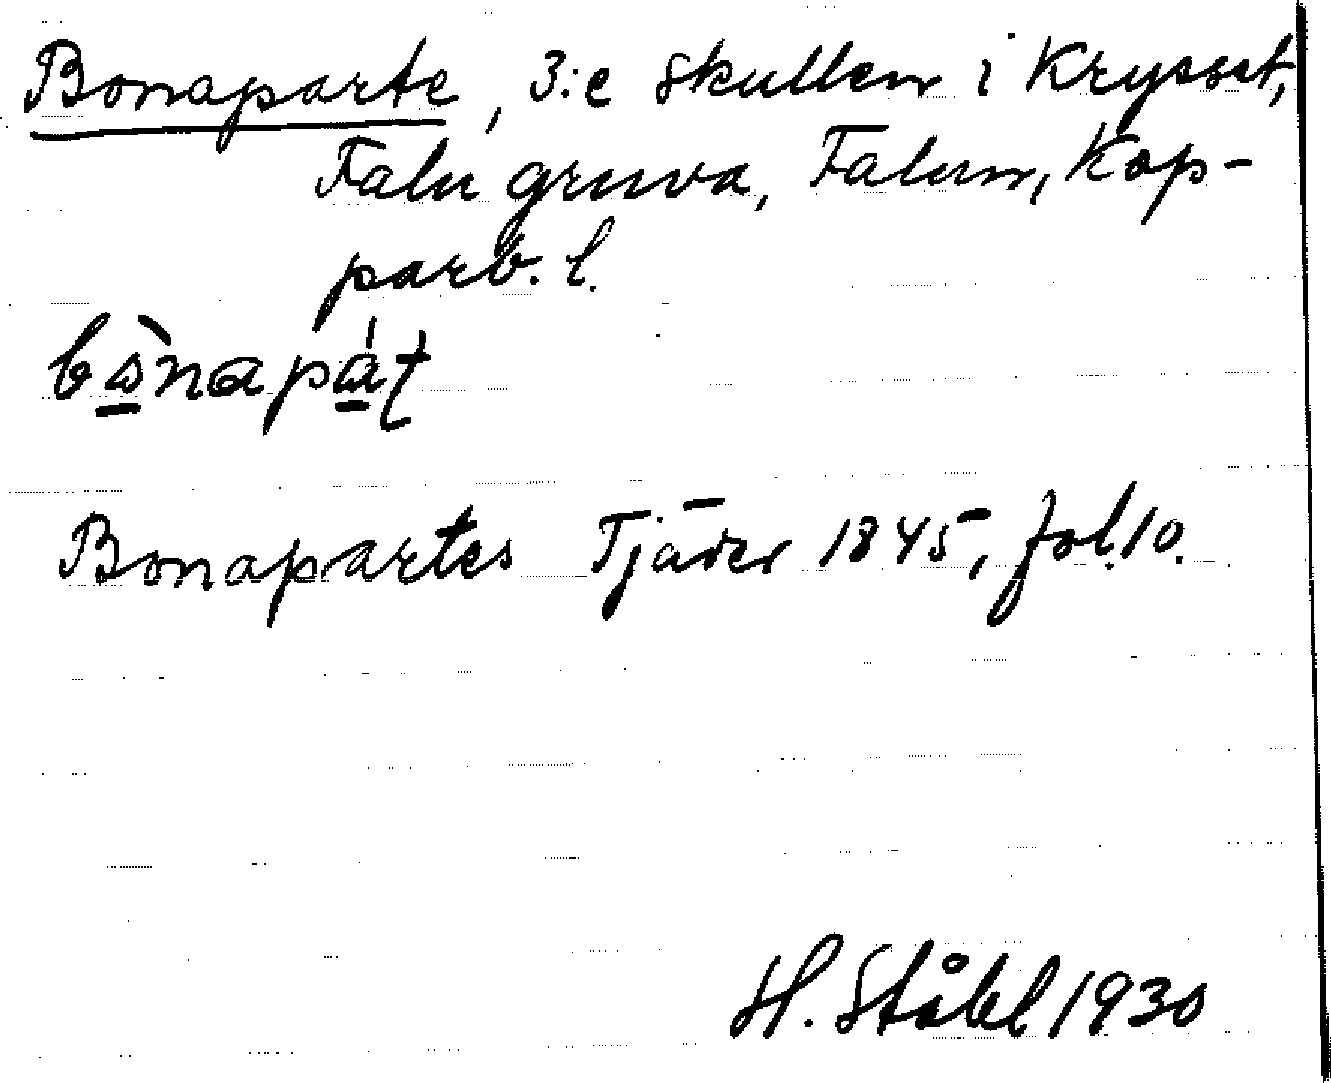 Bonaparte, 3:e skullen i Krysset,
Falu gruva, Falun, Kop-
parb. l.
bònapát
Bonapartes Tjäder 1845, fol. 10.
H. Ståhl 1930